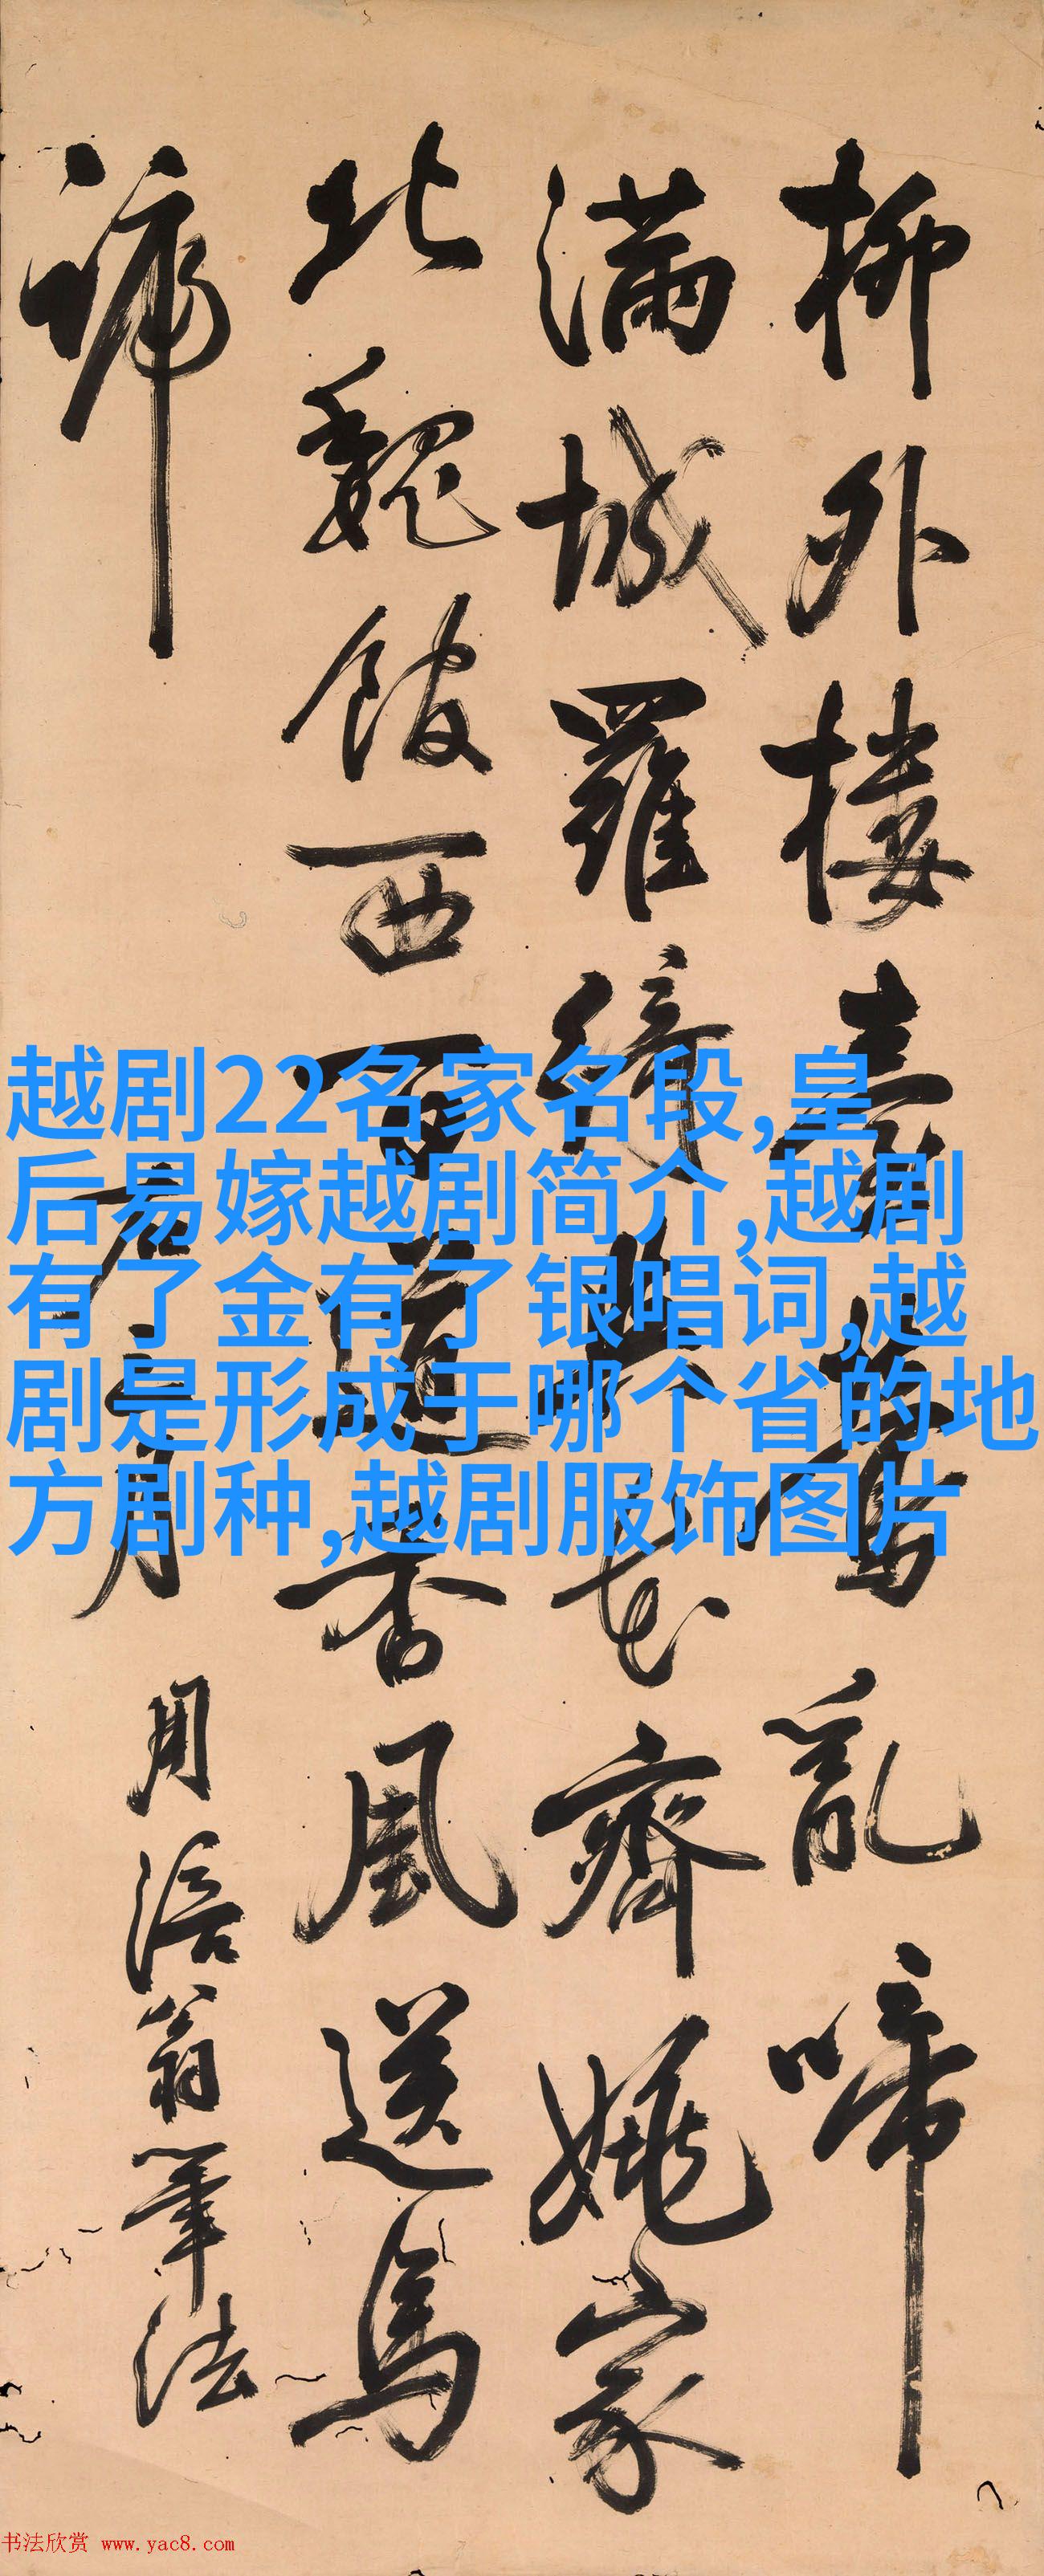 柳外樓臺亂啼
滿城羅綺花齊姚家
北魏西道香風送馬
蹄
右二月
用涪翁筆法
越剧22名家名段,皇
后易嫁越剧简介,越剧
有了金有了银唱词,越
剧是形成于哪个省的地
方剧种,越剧服饰图片
书法欣赏 www.yac8.com